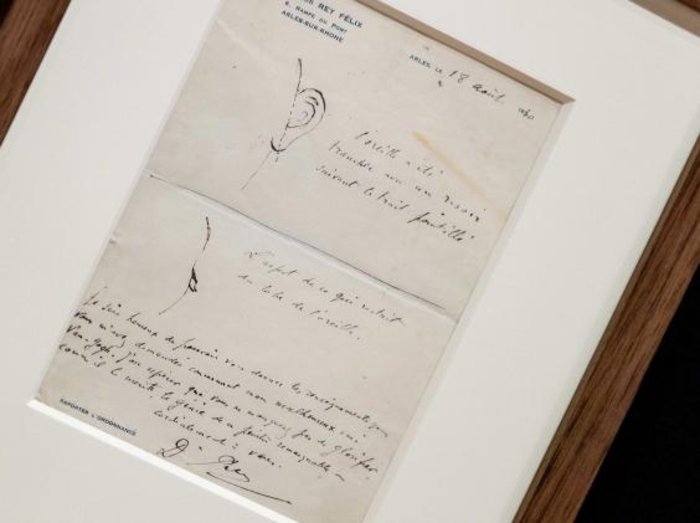 REY FÉLIX
6, RAMPE DU PONT
ARLES-SUR-RHONE
ARLES, LE 18 août
L'oreille a été
tranchée avec un rasoir
suivant le trait pointillé
L'aspect de ce qui restait
du lobe de l'oreille.
Je suis heureux de pouvoir vous donner les renseignements que
vous m'avez demandés concernant mon malheureux ami
Van Gogh. J'ose espérer que vous ne manquerez pas de glorifier
comme il le mérite, le génie de ce peintre remarquable
Cordialement à vous.
Dr Rey
RAPPORTER L'ORDONNANCE